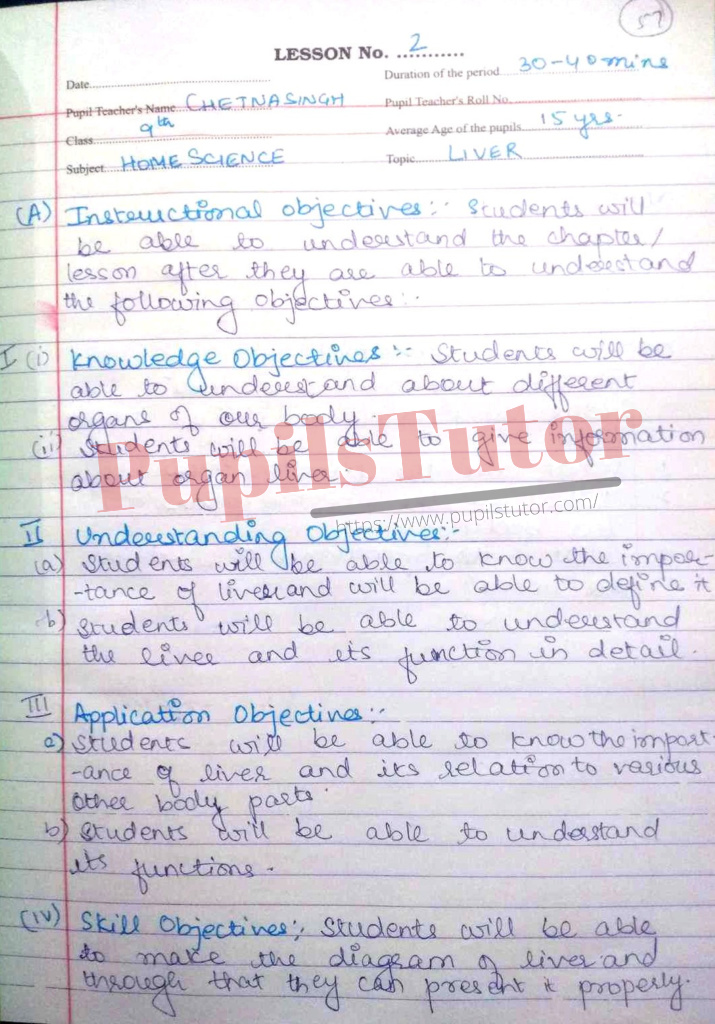 57
LESSON No. 2
Date
Duration of the period 30-40 mins
Pupil Teacher's Name CHETNA SINGH
Pupil Teacher's Roll No.
Class 9th
Average Age of the pupils 15 yrs.
Subject HOME SCIENCE
Topic LIVER
(A) Instructional objectives:- Students will
be able to understand the chapter/
lesson after they are able to understand
the following objectives:-
I (i) Knowledge Objectives:- Students will be
able to understand about different
organs of our body
(ii) Students will be able to give information
about organ liver.
PupilsTutor
https://www.pupilstutor.com/
II Understanding Objectives:-
(a) Students will be able to know the impor-
-tance of liver and will be able to define it
b) Students will be able to understand
the liver and its function in detail.
III Application Objectives:-
a) Students will be able to know the import-
-ance of liver and its relation to various
other body parts.
b) Students will be able to understand
its functions.
(IV) Skill Objectives:, Students will be able
to make the diagram of liver and
through that they can present it properly.